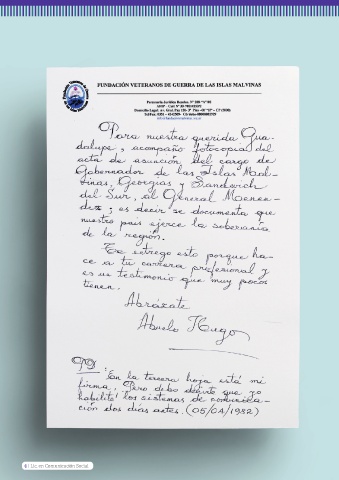 FUNDACIÓN VETERANOS DE GUERRA DE LAS ISLAS MALVINAS
Para nuestra querida Gua-
dalupe, acompaño fotocopia del
acta de asunción del cargo de
Gobernador de las Islas Mal-
vinas, Georgias y Sandwich
del Sur, al General Menen-
dez; es decir se documenta que
nuestro país ejerce la soberanía
de la región.
Te entrego esto porque ha-
ce a tu carrera profesional y
es un testimonio que muy pocos
tienen.
Abrázate
Abuelo Hugo
PD: En la tercera hoja está mi
firma. Pero debo decirte que yo
habilité los sistemas de comunica-
ción dos días antes. (05/04/1982)
6 | Lic en Comunicación Social